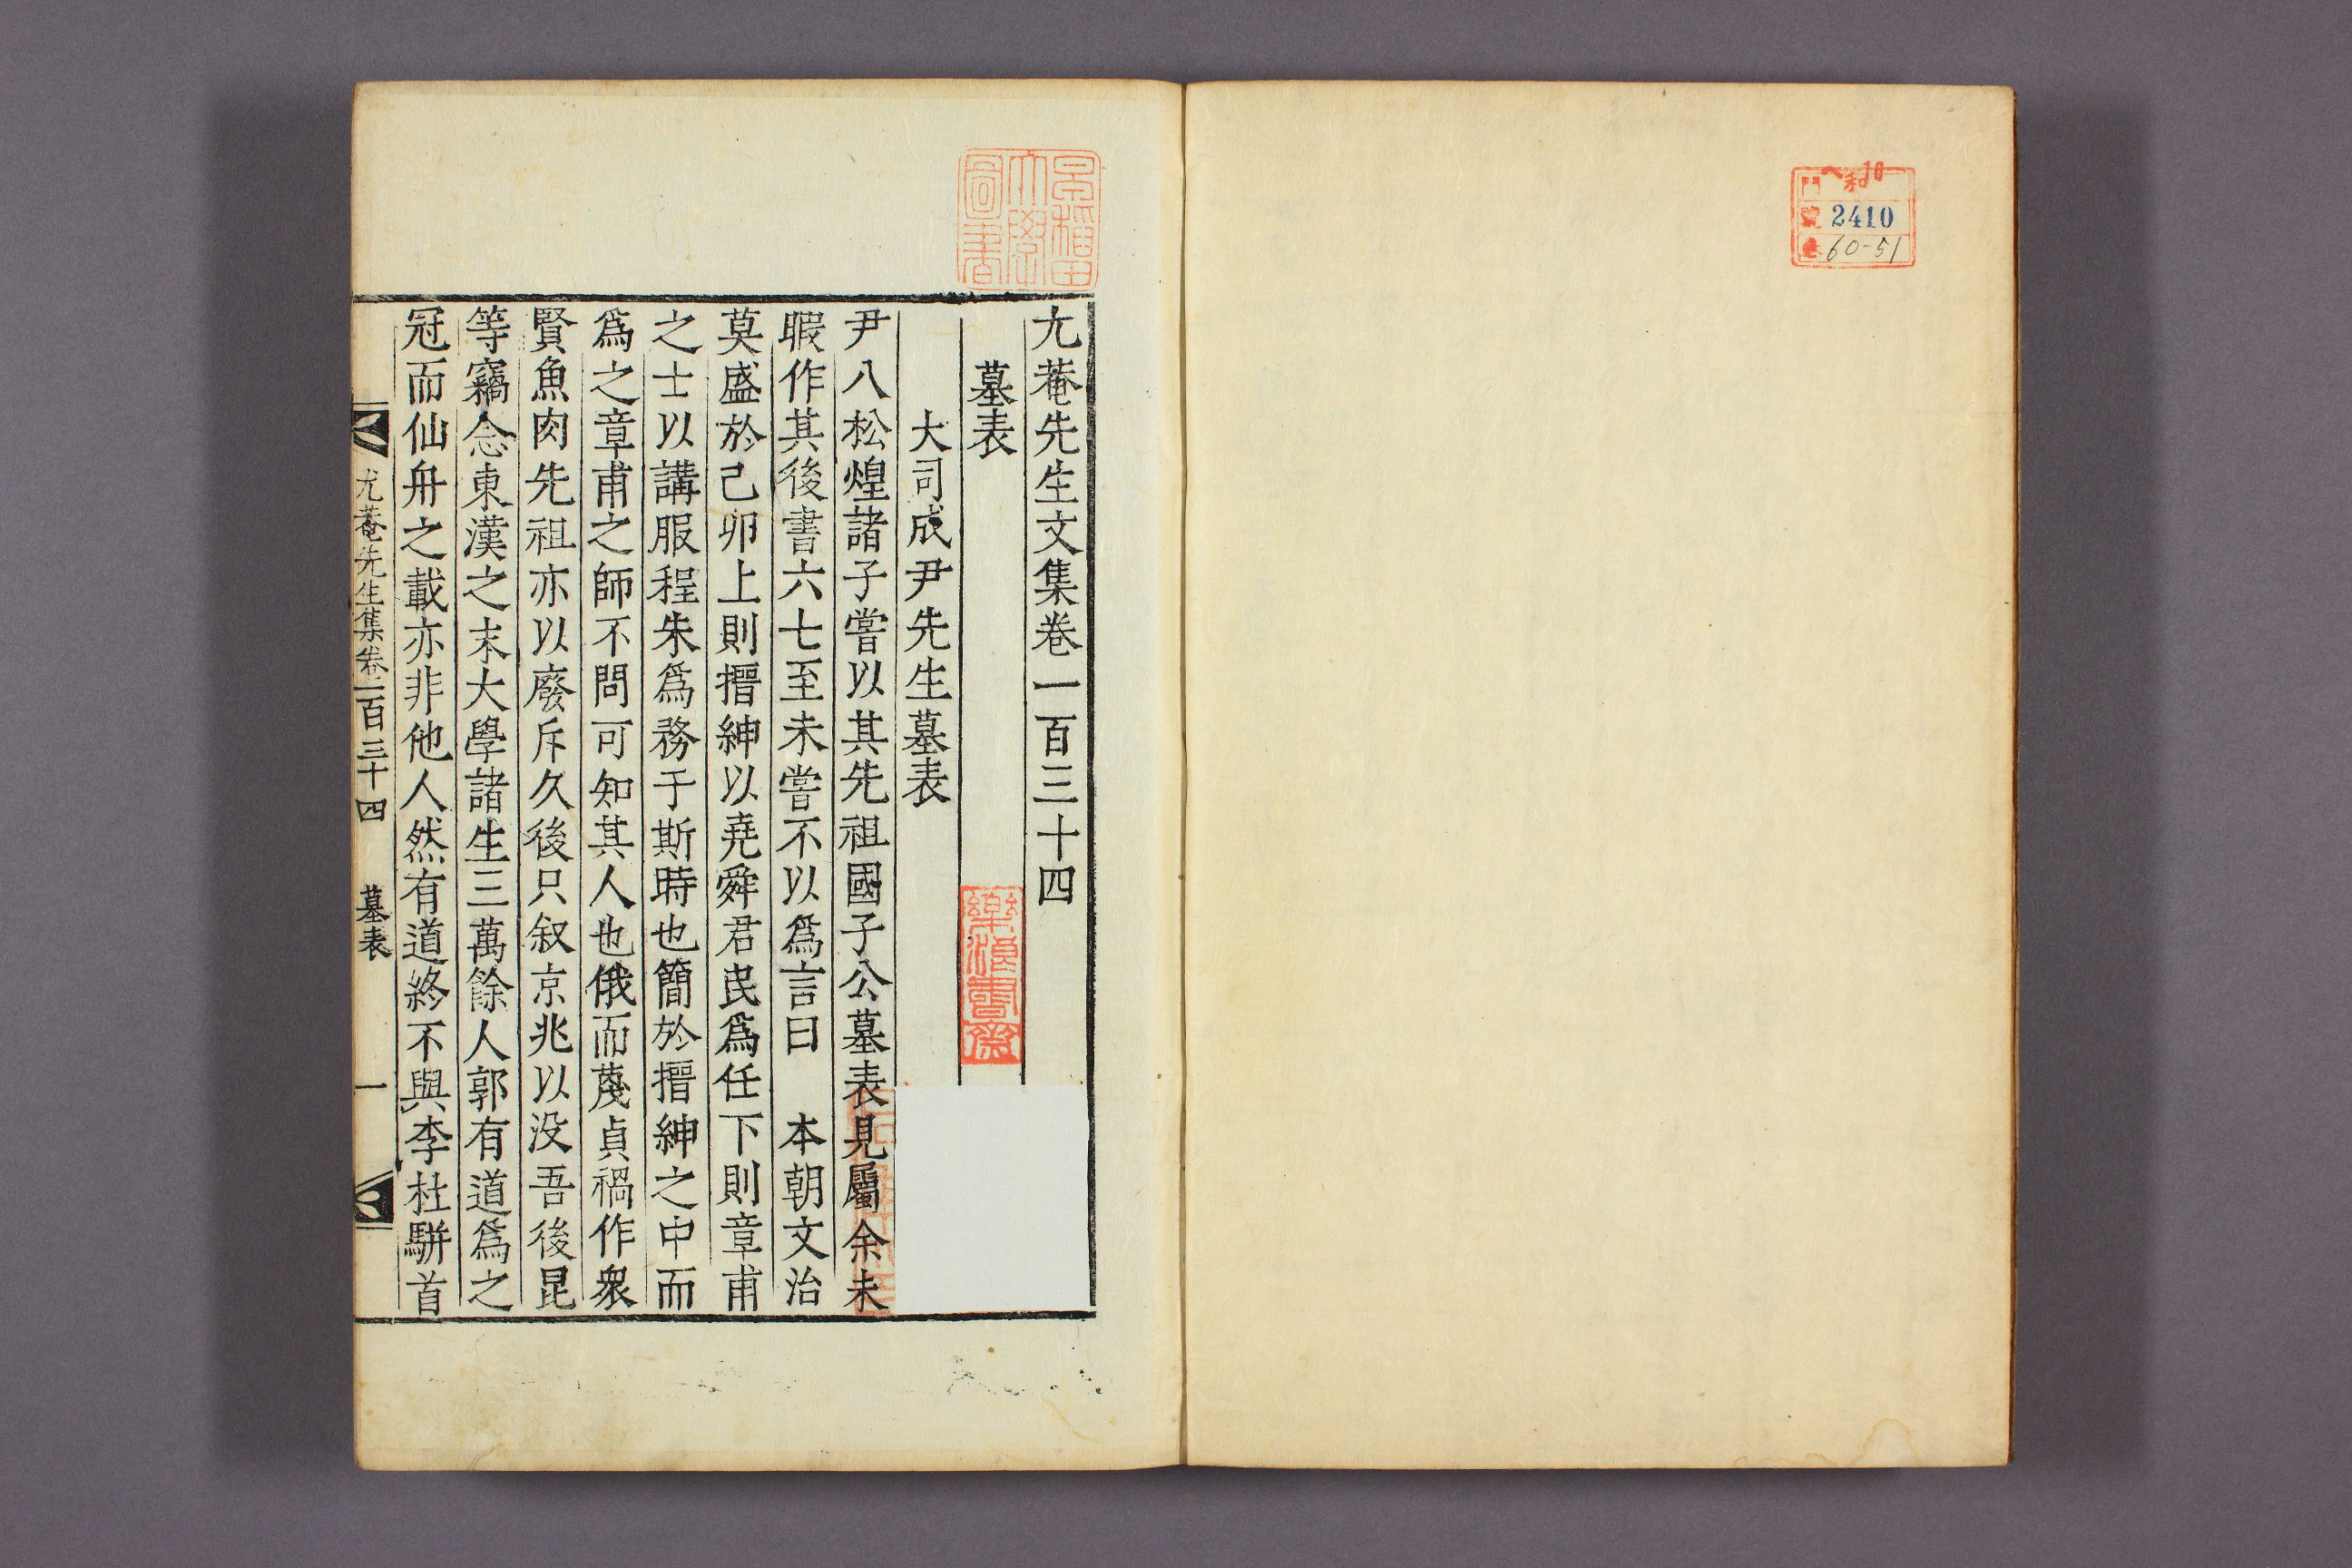 和 10
門
號 2410
卷 60-51
早稲田
大學
圖書
尤菴先生文集卷一百三十四
墓表
樂浪書齋
大司成尹先生墓表
尹八松煌諸子嘗以其先祖國子公墓表見屬余未
暇作其後書六七至未嘗不以爲言曰 本朝文治
莫盛於己卯上則搢紳以堯舜君民爲任下則章甫
之士以講服程朱爲務于斯時也簡於搢紳之中而
爲之章甫之師不問可知其人也俄而蔑貞禍作衆
賢魚肉先祖亦以廢斥久後只叙京兆以没吾後昆
等竊念東漢之末大學諸生三萬餘人郭有道爲之
冠而仙舟之載亦非他人然有道終不與李杜駢首
尤菴先生集卷一百三十四 墓表 一